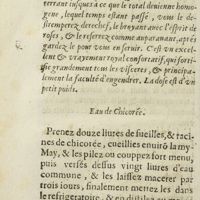 terrant iusques à ce que le total deuienne homo-
gene, lequel temps estant passé, vous le de-
stremperez derechef, le broyant avec l'esprit de
roses, & le resserrez comme auparauant, apres
gardez le pour vous en seruir. C'est un excel-
lent & vrayement royal confortatif, qui forti-
fie grandement tous les visceres, & principa-
lement la faculté d'engendrer. La dose est d'vn
petit poids.
Eau de Chicorée.
Prenez douze liures de fueilles, & raci-
nes de chicorée, cueillies enuirō la my-
May, & les pilez ou couppez fort menu,
puis versés dessus vingt liures d'eau
commune, & les laissez macerer par
trois iours, finalement mettez les dans
le refrigeratoire, & en distilez au